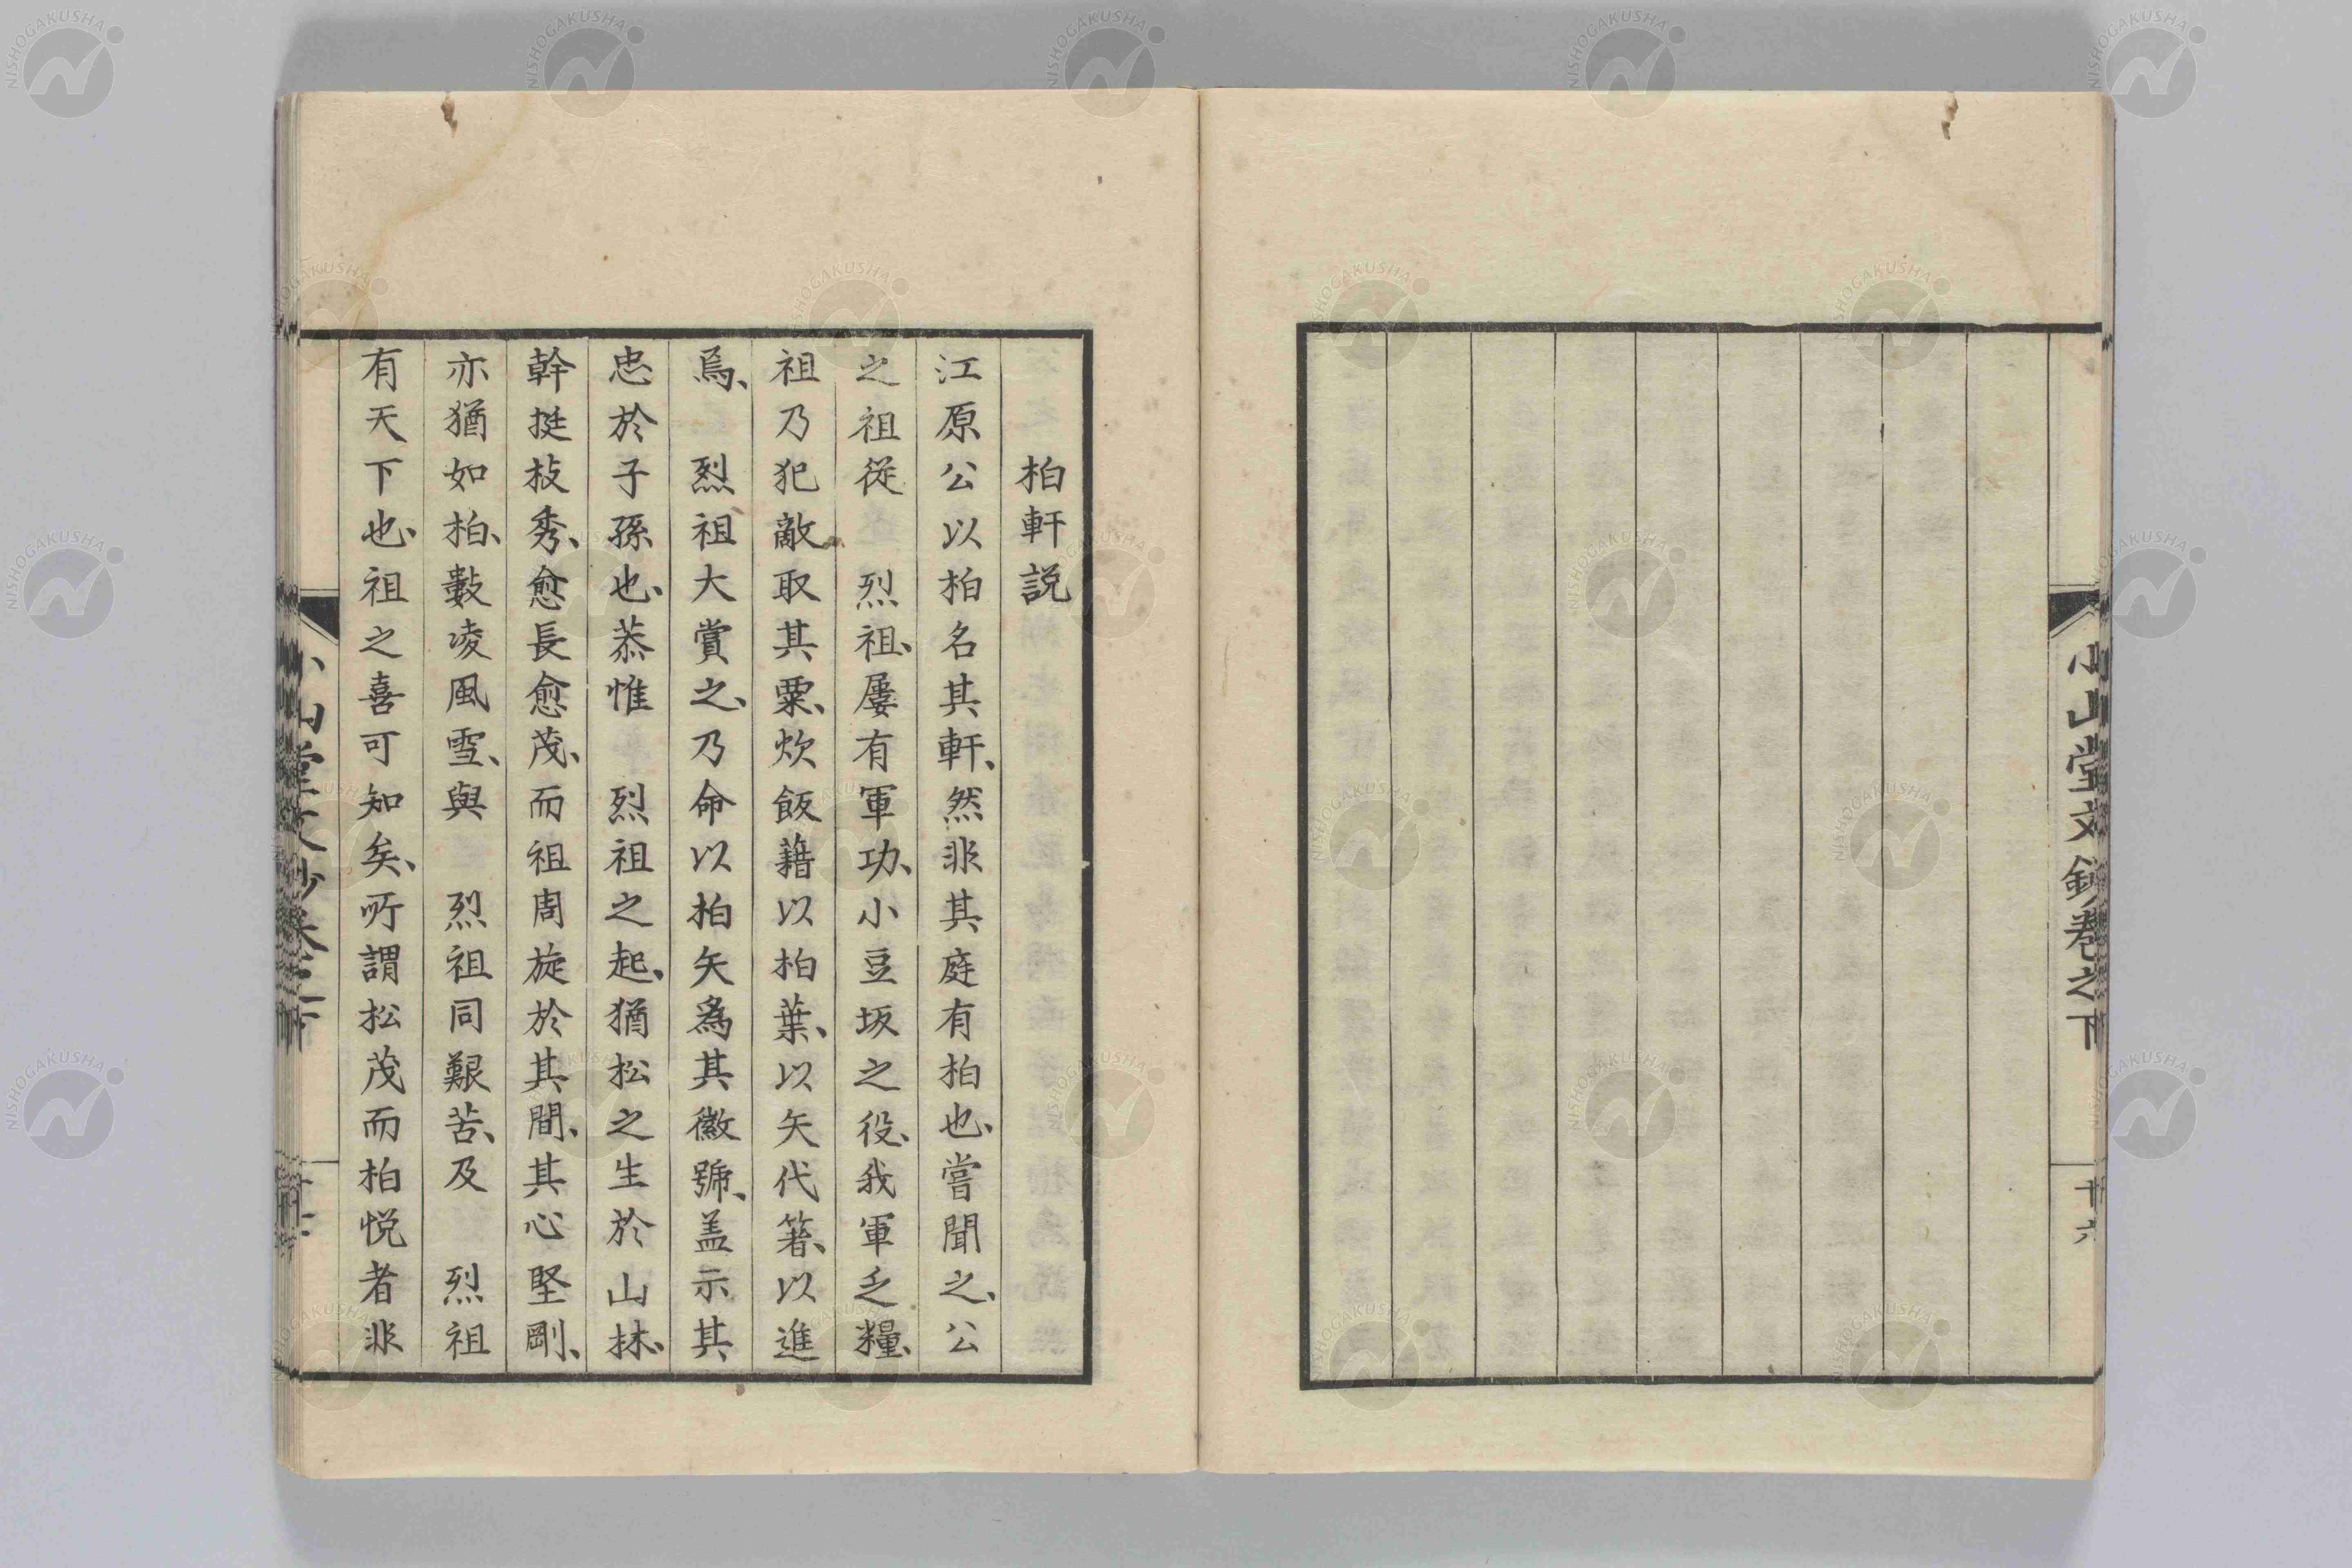 小山堂文鈔卷之下
十六
柏軒説
江原公以柏名其軒、然非其庭有柏也、嘗聞之、公
之祖從　烈祖、屢有軍功、小豆坂之役、我軍乏糧、
祖乃犯敵取其粟、炊飯藉以柏葉、以矢代箸、以進
焉、　烈祖大賞之、乃命以柏矢爲其徽號、盖示其
忠於子孫也、恭惟　烈祖之起、猶松之生於山林、
幹挺枝秀、愈長愈茂、而祖周旋於其間、其心堅剛、
亦猶如柏、數凌風雪、與　烈祖同艱苦、及　烈祖
有天下也、祖之喜可知矣、所謂松茂而柏悦者非
小山堂文鈔卷之下
NISHOGAKUSHA